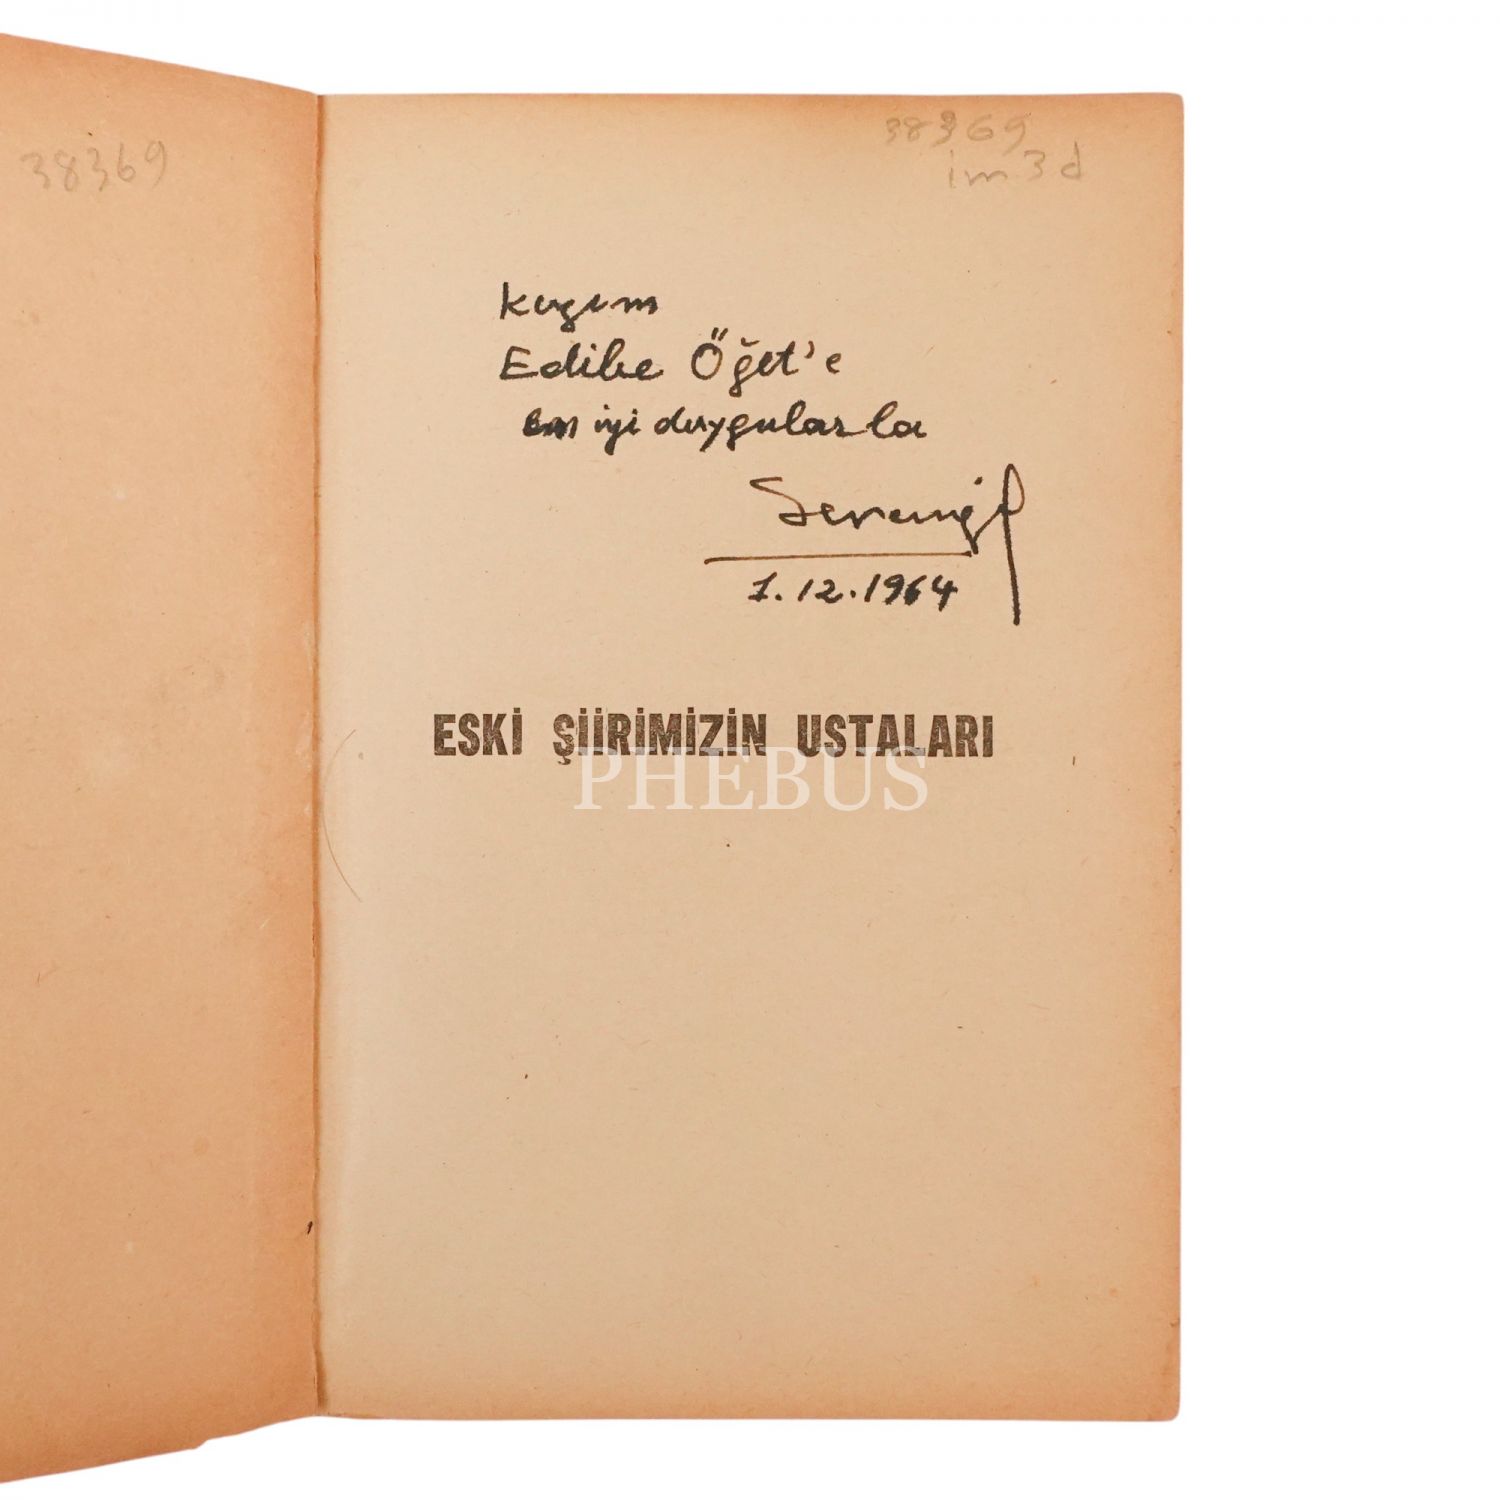 38369
38369
im 3 d
kızım
Edibe Öğet'e
en iyi duygularla
Serengil
1.12.1964
ESKİ ŞİİRİMİZİN USTALARI
PHEBUS